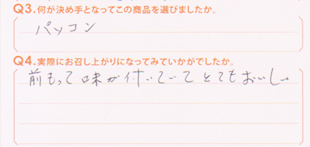 Q3.何が決め手となってこの商品を選びましたか。
パソコン
Q4.実際にお召し上がりになってみていかがでしたか。
前もって味が付いていてとてもおいしい